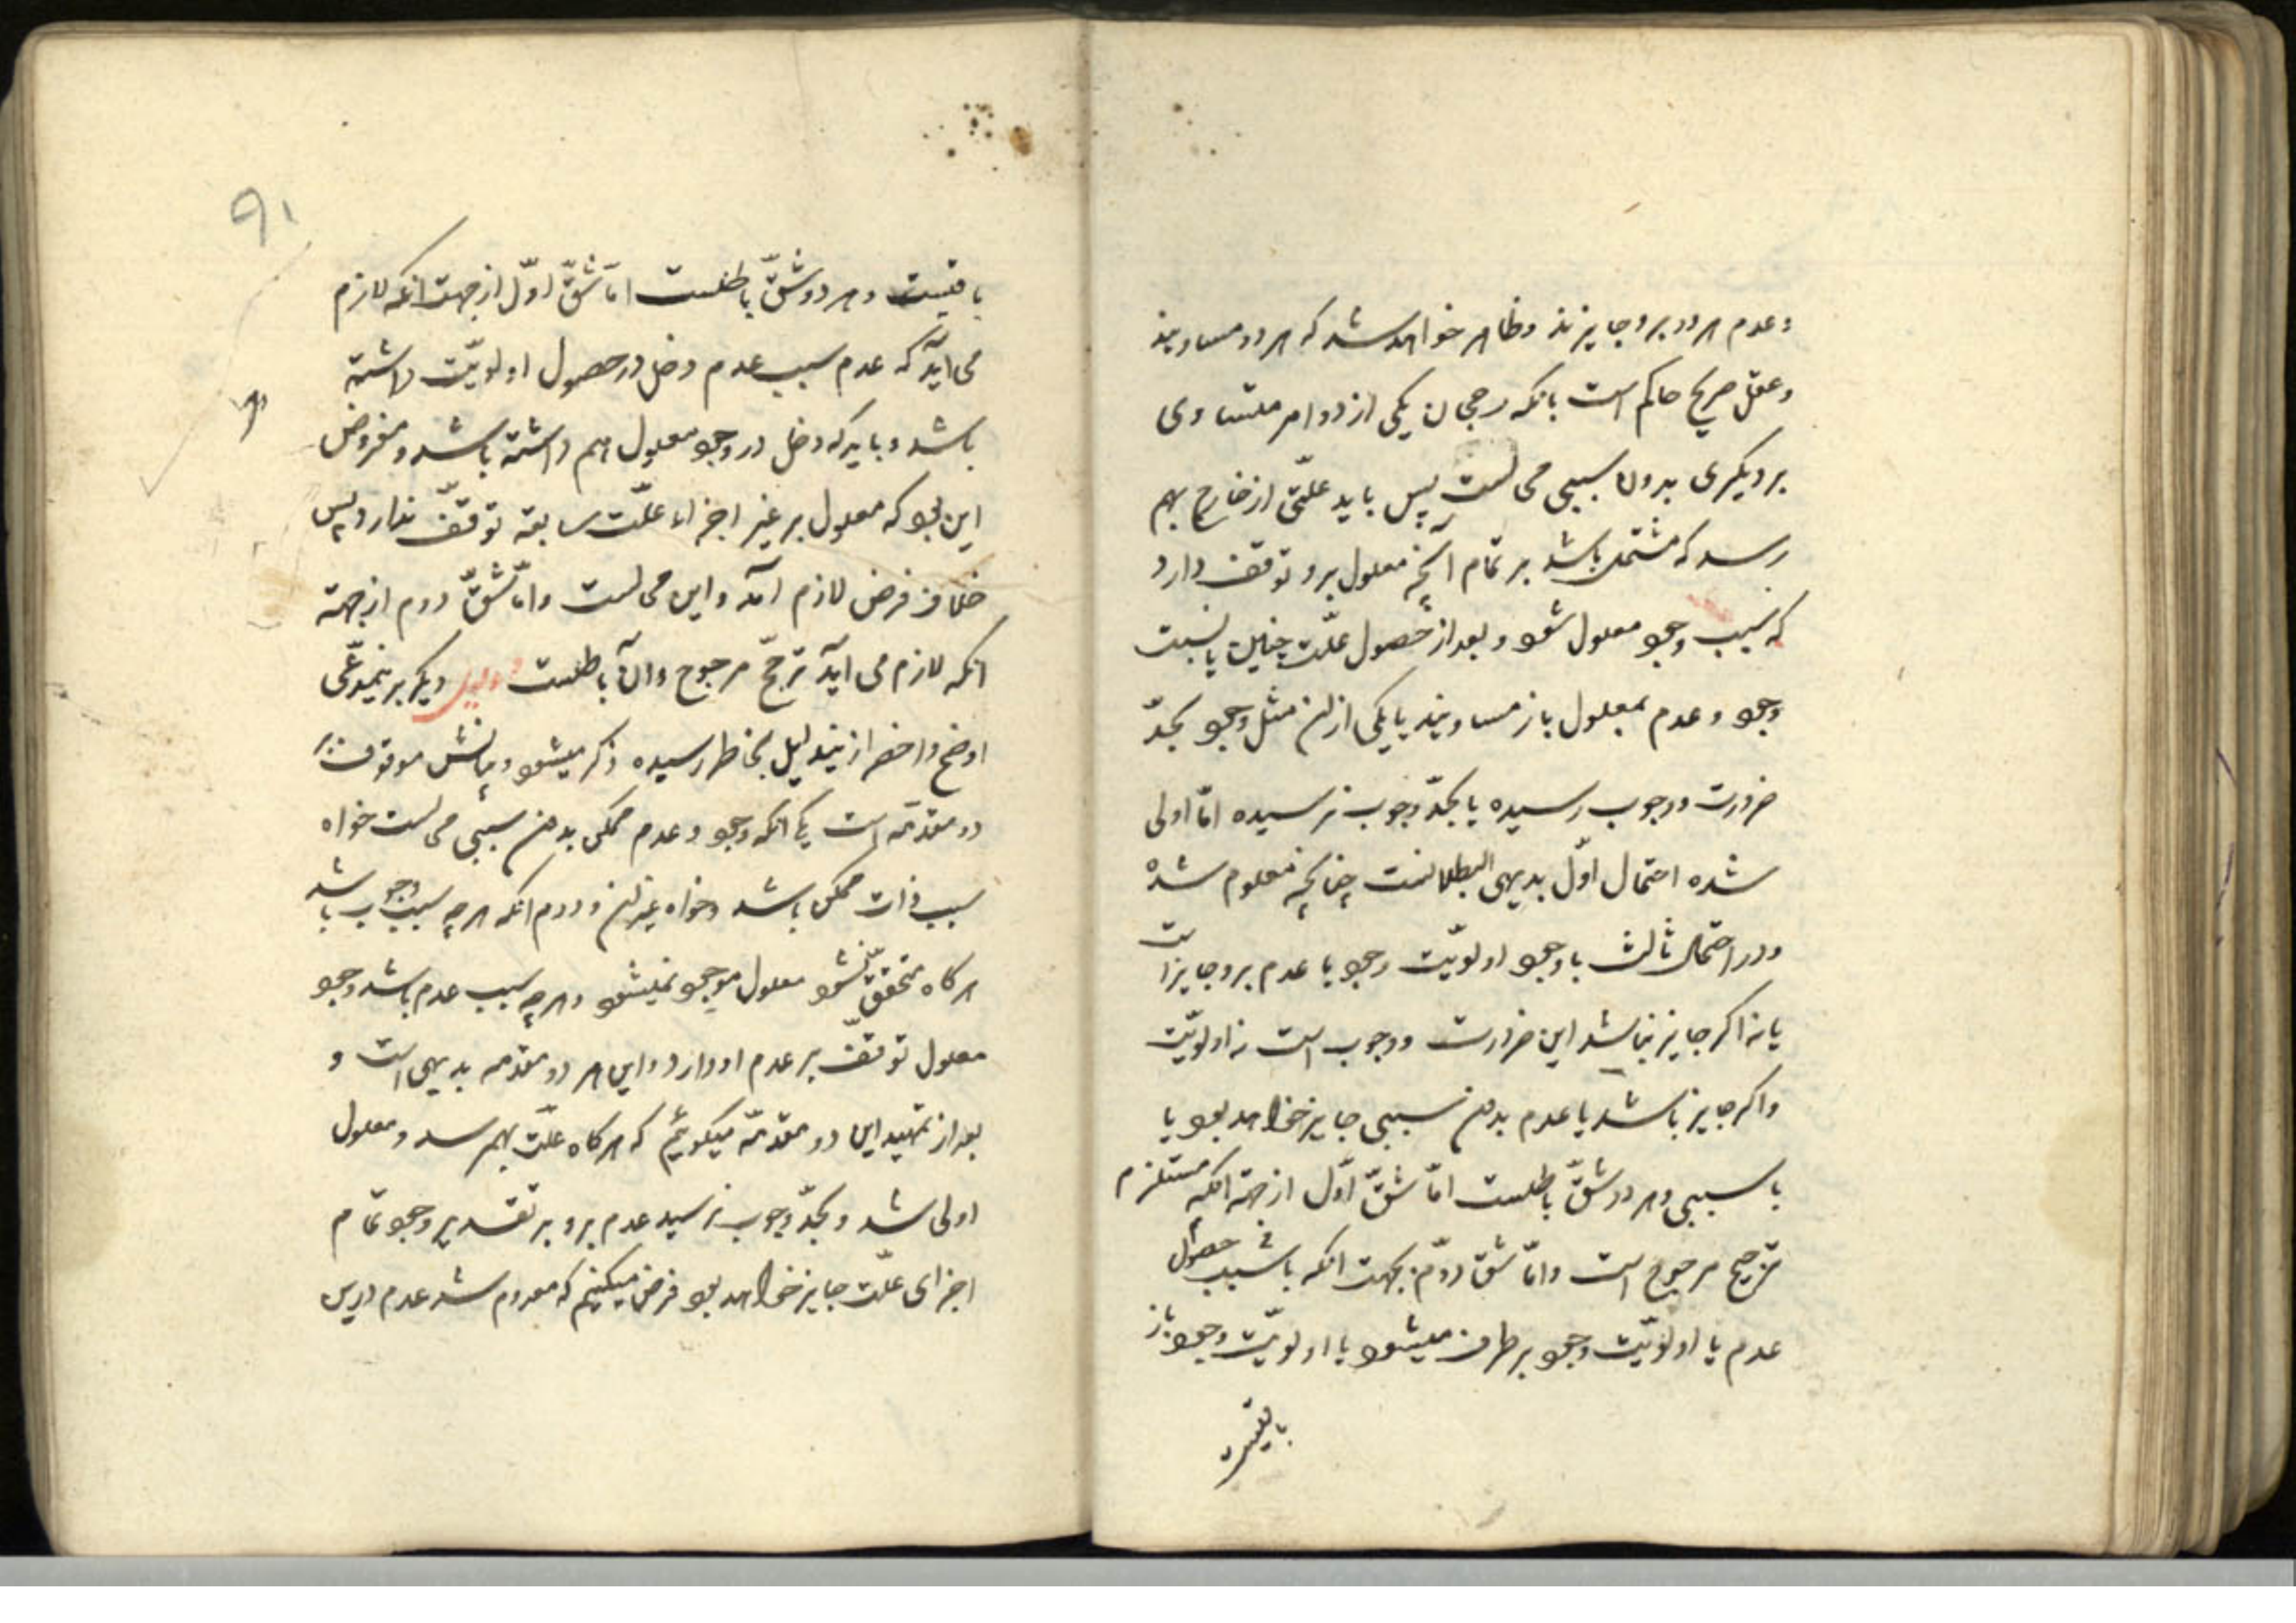 و عدم هر دو برو جایزند و ظاهر خواهد شد که هر دو مساویند
و عقل صریح حاکم است بانکه رجحان یکی از دو امر متساوی
بر دیگری بدون سببی محالست پس باید علّتی از خارج بهم
رسد که مشتمل باشد بر تمام آنچه معلول برو توقف دارد
که سبب وجود معلول شود و بعد از حصول علّت چنین یا نسبت
وجود و عدم بمعلول باز مساویند یا یکی ازین مثل وجود بحدّ
ضرورت و وجوب رسیده یا بحدّ وجوب نرسیده امّا اولی
شده احتمال اوّل بدیهی البطلانست چنانچه معلوم شد
و در احتمال ثالث با وجود اولویّت وجود یا عدم برو جایز است
یا نه اگر جایز نباشد این ضرورت و وجوب است نه اولویّت
و اگر جایز باشد یا عدم بدون سببی جایز خواهد بود یا
با سببی و هر دو شقّ باطلست امّا شقّ اوّل از جهة آنکه مستلزم
ترجیح مرجوح است و امّا شقّ دوّم بجهت انکه با سبب حصول
عدم یا اولویّت وجود برطرف میشود یا اولویّت وجود باز
باقیست
۹۱
باقیست و هر دو شقّ باطلست امّا شقّ اوّل از جهت انکه لازم
می آید که عدم سبب عدم دخل در حصول اولویّت داشته
باشد و باید که دخل در وجود معلول هم داشته باشد و مفروض
این بود که معلول بر غیر اجزاء علّت سابقه توقّف ندارد پس
خلاف فرض لازم آمد و این محالست و امّا شقّ دوم از جهة
انکه لازم می آید ترجّح مرجوح و آن باطلست دلیل دیگر برینمدّعی
اوضح و اخصر ازیندلیل بخاطر رسیده ذکر میشود و بیانش موقوف بر
دو مقدّمه است یکی انکه وجود و عدم ممکن بدون سببی محالست خواه
سبب ذات ممکن باشد و خواه غیر ان و دوم انکه هر چه سبب وجود باشد
هر گاه متحقّق نشود معلول موجود نمیشود و هر چه سبب عدم باشد وجود
معلول توقّف بر عدم او دارد و این هر دو مقدمه بدیهی است و
بعد از تمهید این دو مقدّمه میگوئیم که هر گاه علّت بهم رسد و معلول
اولی شد و بحدّ وجوب نرسید عدم برو بر تقدیر وجود تمام
اجزای علّت جایز خواهد بود فرض میکنیم که معدوم شد عدم درین